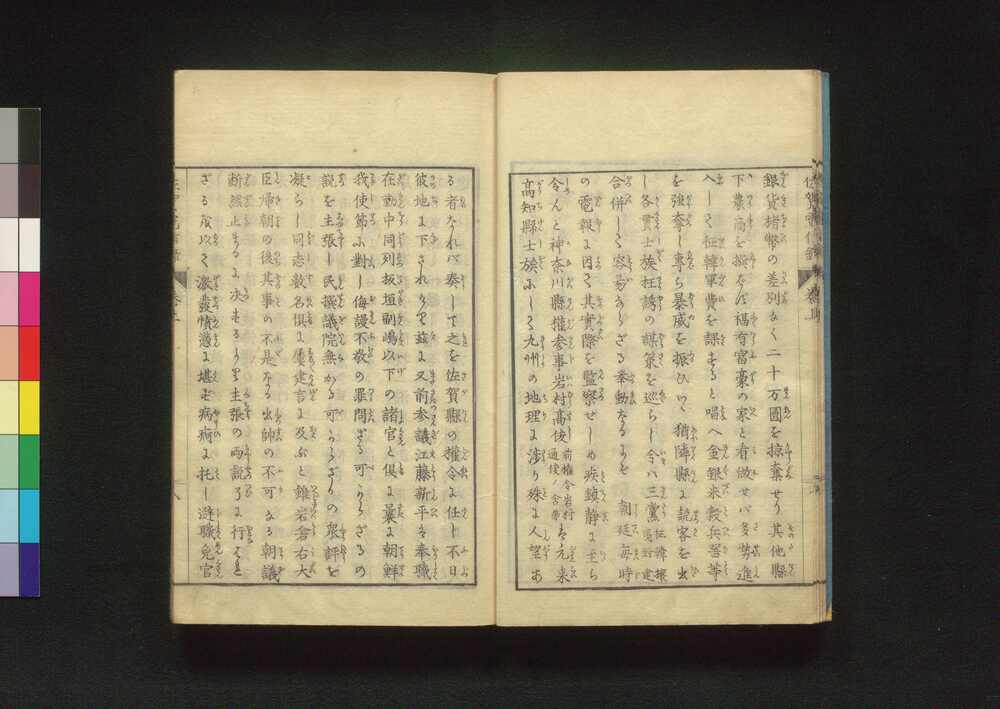 銀貨楮幣の差別なく二十万圓を掠奪せり其他縣
下農商を撰はず福有富豪の家と看做せバ多勢進
入して征韓軍費を課すると唱へ金銀米穀兵器等
を強奪し専ら暴威を振ひつゝ猶隣縣に説客を出
し各貫士族狂誘の謀策を巡らし今ハ三黨
合併して容易ならざる挙動なるよを 朝廷毎時
の電報に因て其實際を監察せしめ疾鎮静に至ら
令んと神奈川縣権参事岩村高俊 前権令岩村通俊ノ舎弟 は元来
高知縣士族にして九州の地理に渉り殊に人望あ
る者なれバ奏して之を佐賀縣の権令に任し不日
彼地に下されける茲に又前参議江藤新平ハ奉職
在勤中同列板垣副嶋以下の諸官と倶に曩に朝鮮
我使節に對し侮謾不敬の罪問ざる可からざるの
説を主張し民撰議院無かる可からざるの衆評を
凝らし同志数名倶に屡建言に及ぶと雖岩倉右大
臣帰朝の後其事の不是なる出帥の不可なる朝議
断然止まるに决せるより主張の両説了に行ハれ
ざるを以て激發憤懣に堪ず病痾に托し辞職免官